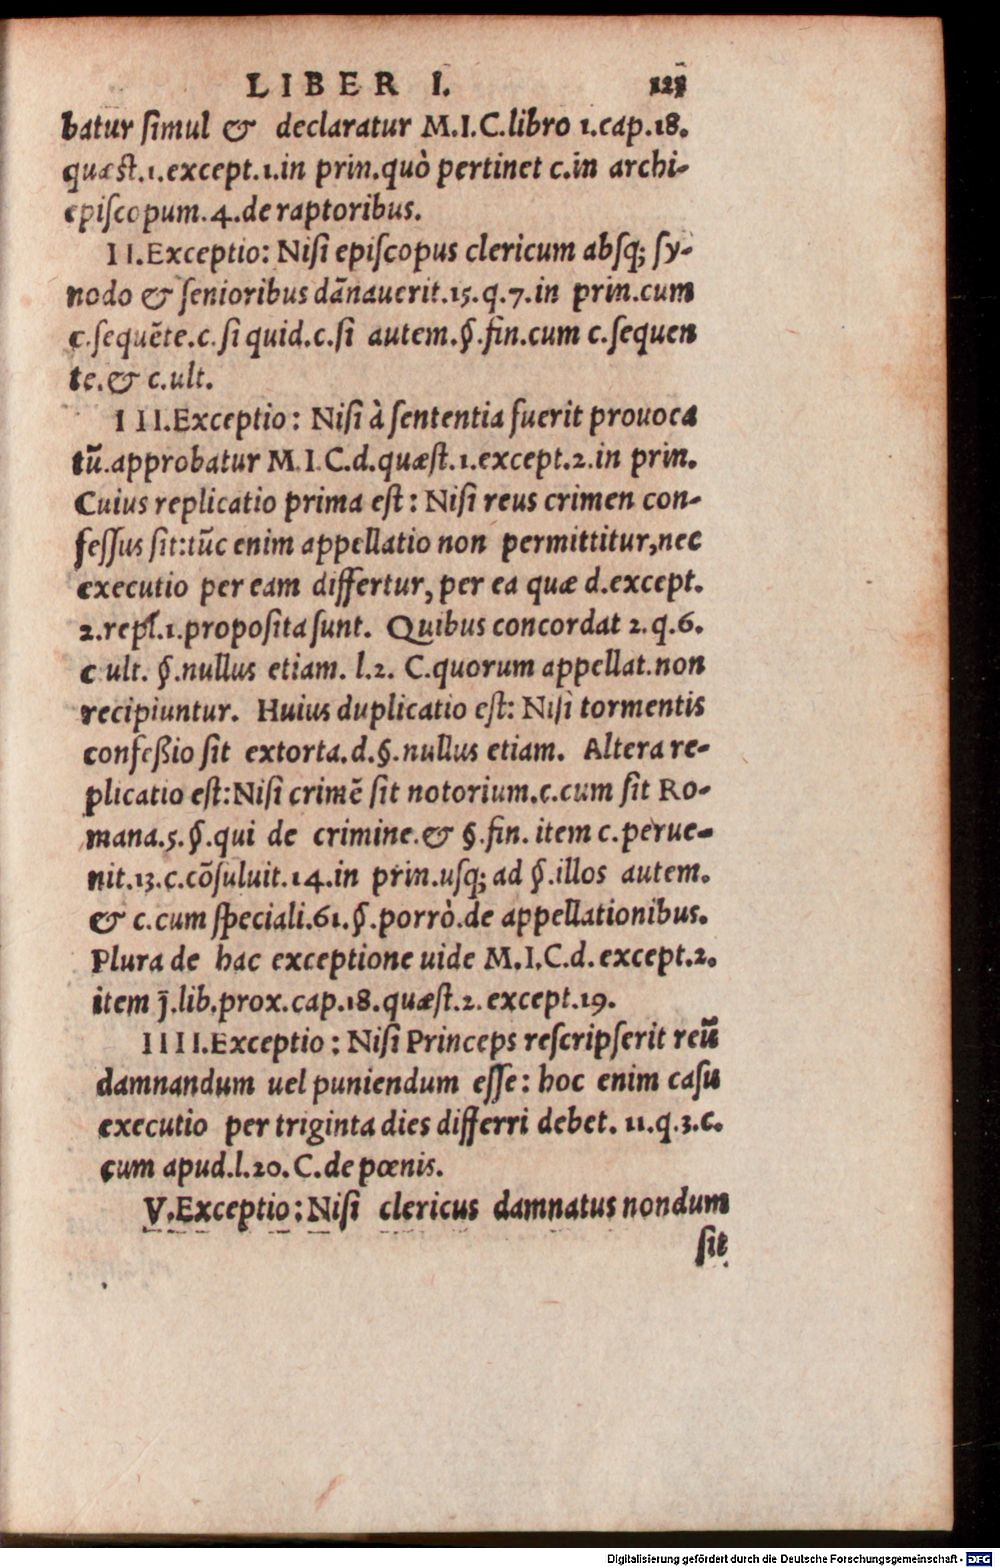 LIBER I.
batur ſimul & declaratur M.I.C.libro 1.cap.18.
quæst.1.except.1.in prin.quò pertinet c.in archi-
epiſcopum.4.de raptoribus.
II.Exceptio: Niſi epiſcopus clericum absq; ſy-
nodo & ſenioribus dānauerit.15.q.7.in prin.cum
c.ſequēte.c.ſi quid.c.ſi autem.§.fin.cum c.ſequen
te.& c.ult.
III.Exceptio: Niſi à ſententia fuerit prouoca
tū.approbatur M.I.C.d.quæst.1.except.2.in prin.
Cuius replicatio prima est: Niſi reus crimen con-
feſſus ſit:tūc enim appellatio non permittitur,nec
executio per eam differtur, per ea quæ d.except.
2.repl.1.propoſita ſunt. Quibus concordat 2.q.6.
c ult. §.nullus etiam. l.2. C.quorum appellat.non
recipiuntur. Huius duplicatio est: Niſi tormentis
confeßio ſit extorta.d.§.nullus etiam. Altera re-
plicatio est:Niſi crimē ſit notorium.c.cum ſit Ro-
mana.5.§.qui de crimine.& §.fin. item c.perue-
nit.13.c.cōſuluit.14.in prin.uſq; ad §.illos autem.
& c.cum ſpeciali.61.§.porrò.de appellationibus.
Plura de hac exceptione uide M.I.C.d. except.2.
item j̄.lib.prox.cap.18.quæst.2.except.19.
IIII.Exceptio: Niſi Princeps reſcripſerit reū
damnandum uel puniendum eſſe: hoc enim caſu
executio per triginta dies differri debet. 11.q.3.c.
cum apud.l.20. C.de pœnis.
V.Exceptio: Niſi clericus damnatus nondum
ſit
Digitalisierung gefördert durch die Deutsche Forschungsgemeinschaft - DFG